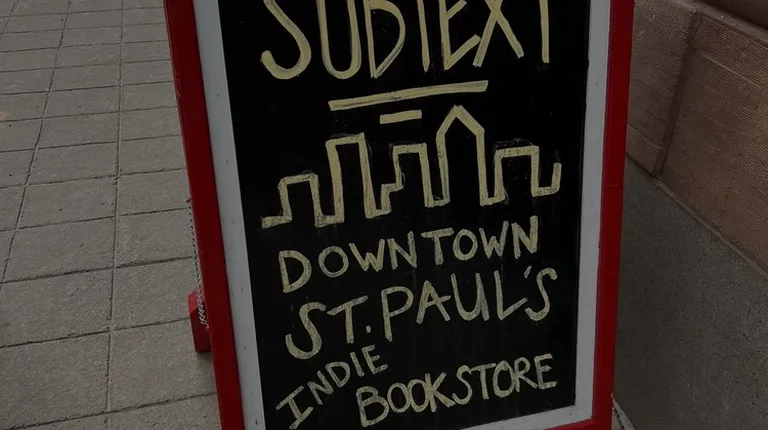 SUBTEXT
DOWNTOWN
ST. PAUL'S
INDIE
BOOKSTORE